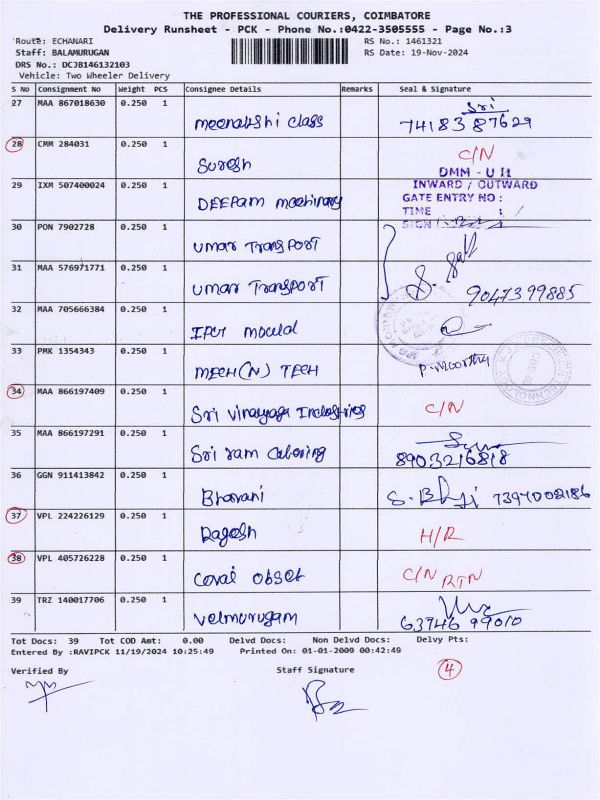 THE PROFESSIONAL COURIERS, COIMBATORE
Delivery Runsheet - PCK - Phone No.:0422-3505555 - Page No.:3
Route: ECHANARI RS No.: 1461321
Staff: BALAMURUGAN RS Date: 19-Nov-2024
DRS No.: DCJB146132103
Vehicle: Two Wheeler Delivery
S No Consignment No Weight PCS Consignee Details Remarks Seal & Signature
27 MAA 867018630 0.250 1 Meenakshi class Sri
74183 87629
28 CMM 284031 0.250 1 Suresh C/N
29 IXM 507400024 0.250 1 DEEPAM machinary
DMM - U II
INWARD / OUTWARD
GATE ENTRY NO :
TIME :
SIGN
30 PON 7902728 0.250 1 UMAR TRANSPORT
31 MAA 576971771 0.250 1 UMAR TRANSPORT 9047399885
32 MAA 705666384 0.250 1 mould
33 PMK 1354343 0.250 1 MECH(N) TECH P. Moorthy
34 MAA 866197409 0.250 1 Sri Vinayaga Industries C/N
35 MAA 866197291 0.250 1 Sri ram Catering 8903216818
36 GGN 911413842 0.250 1 Bhavani 7397002186
37 VPL 224226129 0.250 1 Ragesh H/R
38 VPL 405726228 0.250 1 Covai C/N RTN
39 TRZ 140017706 0.250 1 Velmurugam 63746 99010
Tot Docs: 39 Tot COD Amt: 0.00 Delvd Docs: Non Delvd Docs: Delvy Pts:
Entered By :RAVIPCK 11/19/2024 10:25:49 Printed On: 01-01-2009 00:42:49
4
Verified By Staff Signature